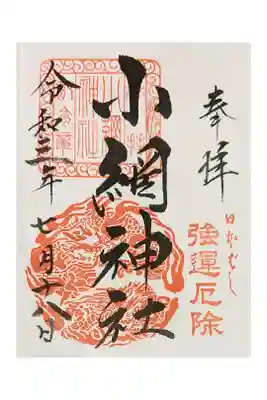 奉拝
日本ばし
強運厄除
小網神社
令和三年
七月十八日